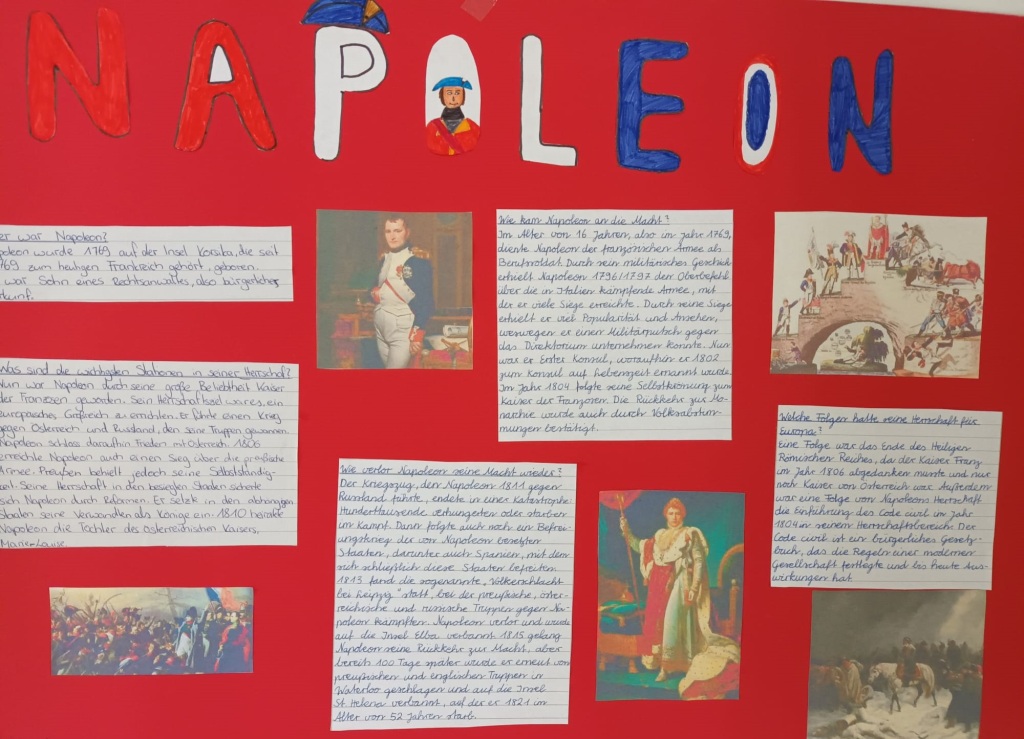 NAPOLEON
er war Napoleon?
poleon wurde 1769 auf der Insel Korsika, die seit
769 zum heutigen Frankreich gehört, geboren.
war Sohn eines Rechtsanwaltes, also bürgerlicher
kunft.
Was sind die wichtigsten Stationen in seiner Herrschaf?
Nun war Napoleon durch seine große Beliebtheit Kaiser
der Franzosen geworden. Sein Herrschaftsziel war es, ein
europäisches Großreich zu errichten. Er führte einen Krieg
gegen Österreich und Russland, den seine Truppen gewannen.
Napoleon schloss daraufhin Frieden mit Österreich. 1806
erreichte Napoleon auch einen Sieg über die preußische
Armee. Preußen behielt jedoch seine Selbständig-
keit. Seine Herrschaft in den besiegten Staaten sicherte
sich Napoleon durch Reformen. Er setzte in den abhängigen
Staaten seine Verwandten als Könige ein. 1810 heiratete
Napoleon die Tochter des österreichischen Kaisers,
Marie-Louise.
Wie verlor Napoleon seine Macht wieder?
Der Kriegszug, den Napoleon 1811 gegen
Russland führte, endete in einer Katastrophe:
Hunderttausende verhungerten oder starben
im Kampf. Dann folgte auch noch ein Befrei-
ungskrieg der von Napoleon besetzten
Staaten, darunter auch Spanien, mit dem
sich schließlich diese Staaten befreiten.
1813 fand die sogenannte „Völkerschlacht
bei Leipzig" statt, bei der preußische, öster-
reichische und russische Truppen gegen Na-
poleon kämpften. Napoleon verlor und wurde
auf die Insel Elba verbannt. 1815 gelang
Napoleon seine Rückkehr zur Macht, aber
bereits 100 Tage später wurde er erneut von
preußischen und englischen Truppen in
Waterloo geschlagen und auf die Insel
St. Helena verbannt, auf der er 1821 im
Alter von 52 Jahren starb.
Wie kam Napoleon an die Macht?
Im Alter von 16 Jahren, also im Jahr 1769,
diente Napoleon der französischen Armee als
Berufssoldat. Durch sein militärisches Geschick
erhielt Napoleon 1796/1797 den Oberbefehl
über die in Italien kämpfende Armee, mit
der er viele Siege erreichte. Durch seine Siege
erhielt er viel Popularität und Ansehen,
weswegen er einen Militärputsch gegen
das Direktorium unternehmen konnte. Nun
war er Erster Konsul, woraufhin er 1802
zum Konsul auf Lebenszeit ernannt wurde.
Im Jahr 1804 folgte seine Selbstkrönung zum
Kaiser der Franzosen. Die Rückkehr zur Mo-
narchie wurde auch durch Volksabstim-
mungen bestätigt.
Welche Folgen hatte seine Herrschaft für
Europa?
Eine Folge war das Ende des Heiligen
Römischen Reiches, da der Kaiser Franz
im Jahr 1806 abgedanken musste und nur
noch Kaiser von Österreich war. Außerdem
war eine Folge von Napoleons Herrschaft
die Einführung des Code civil im Jahr
1804 in seinem Herrschaftsbereich. Der
Code civil ist ein bürgerliches Gesetz-
buch, das die Regeln einer modernen
Gesellschaft festlegte und bis heute Aus-
wirkungen hat.